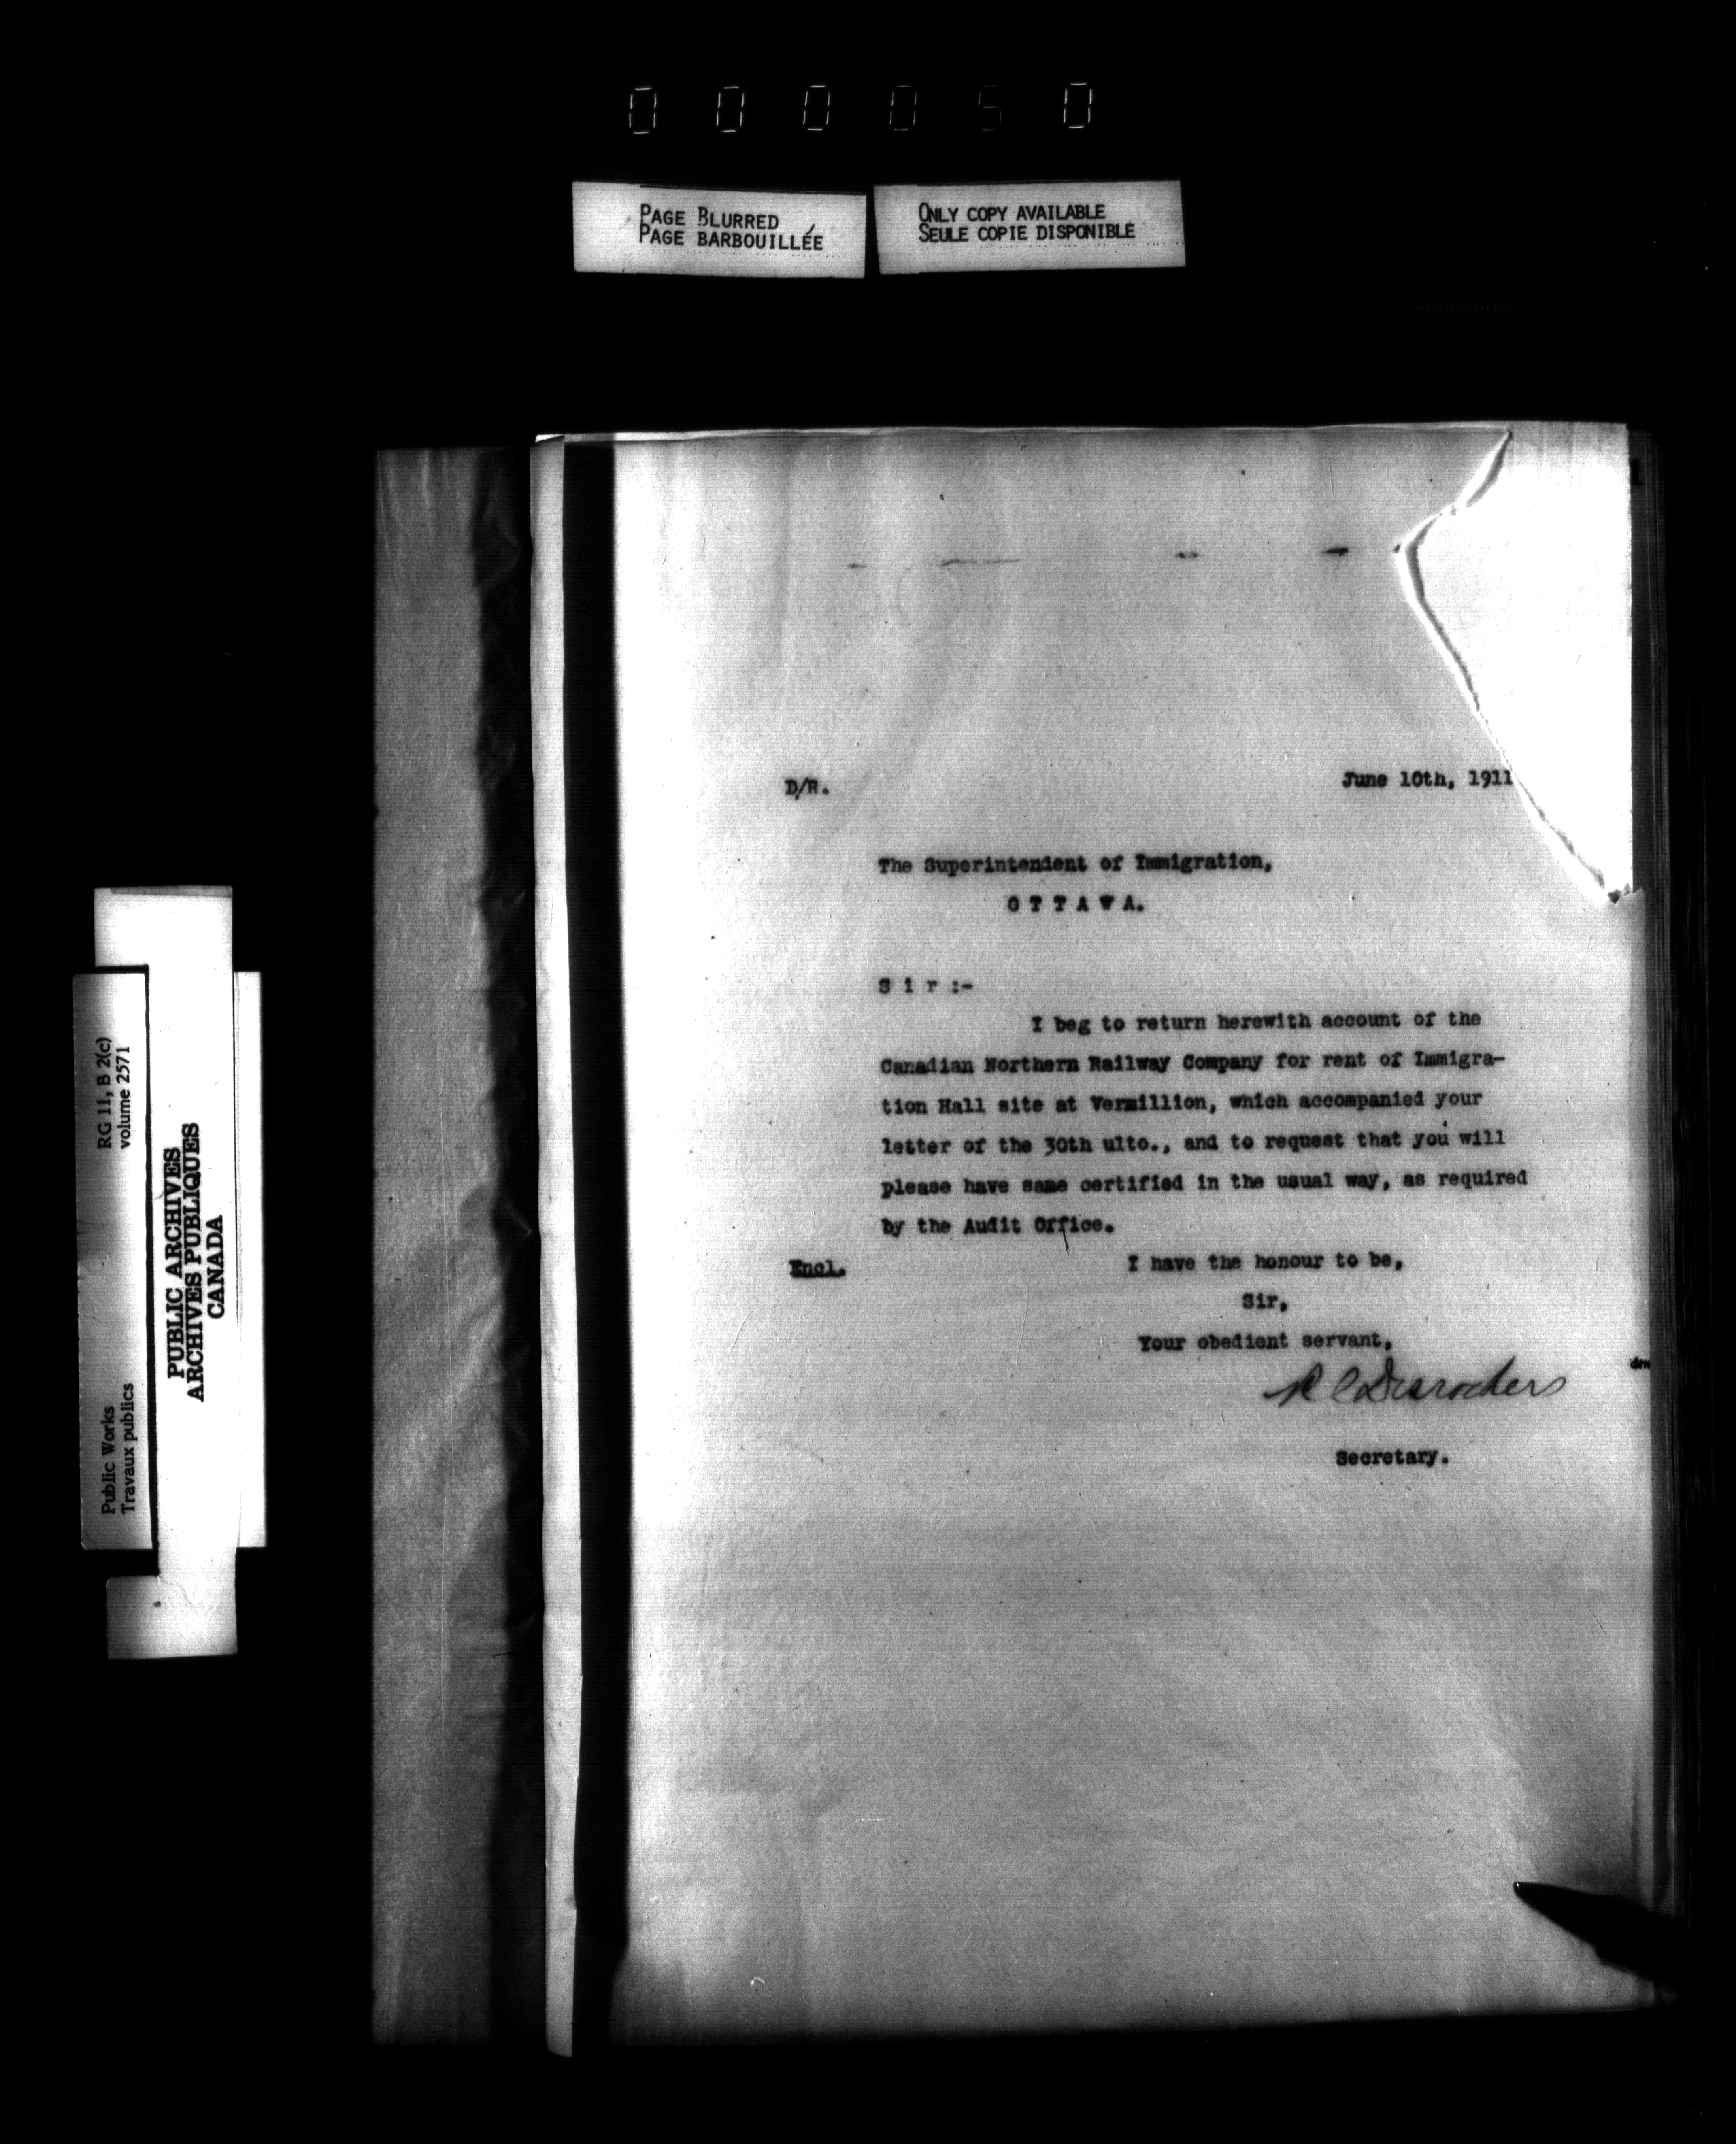 000050
PAGE BLURRED
PAGE BARBOUILLÉE
ONLY COPY AVAILABLE
SEULE COPIE DISPONIBLE
D/R.
June 10th, 1911
The Superintendent of Immigration,
O T T A W A.
S i r :-
I beg to return herewith account of the
Canadian Northern Railway Company for rent of Immigra-
tion Hall site at Vermillion, which accompanied your
letter of the 30th ulto., and to request that you will
please have same certified in the usual way, as required
by the Audit Office.
Encl.
I have the honour to be,
Sir,
Your obedient servant,
R C Desrochers
Secretary.
RG 11, B 2(c)
volume 2571
Public Works
Travaux publics
PUBLIC ARCHIVES
ARCHIVES PUBLIQUES
CANADA